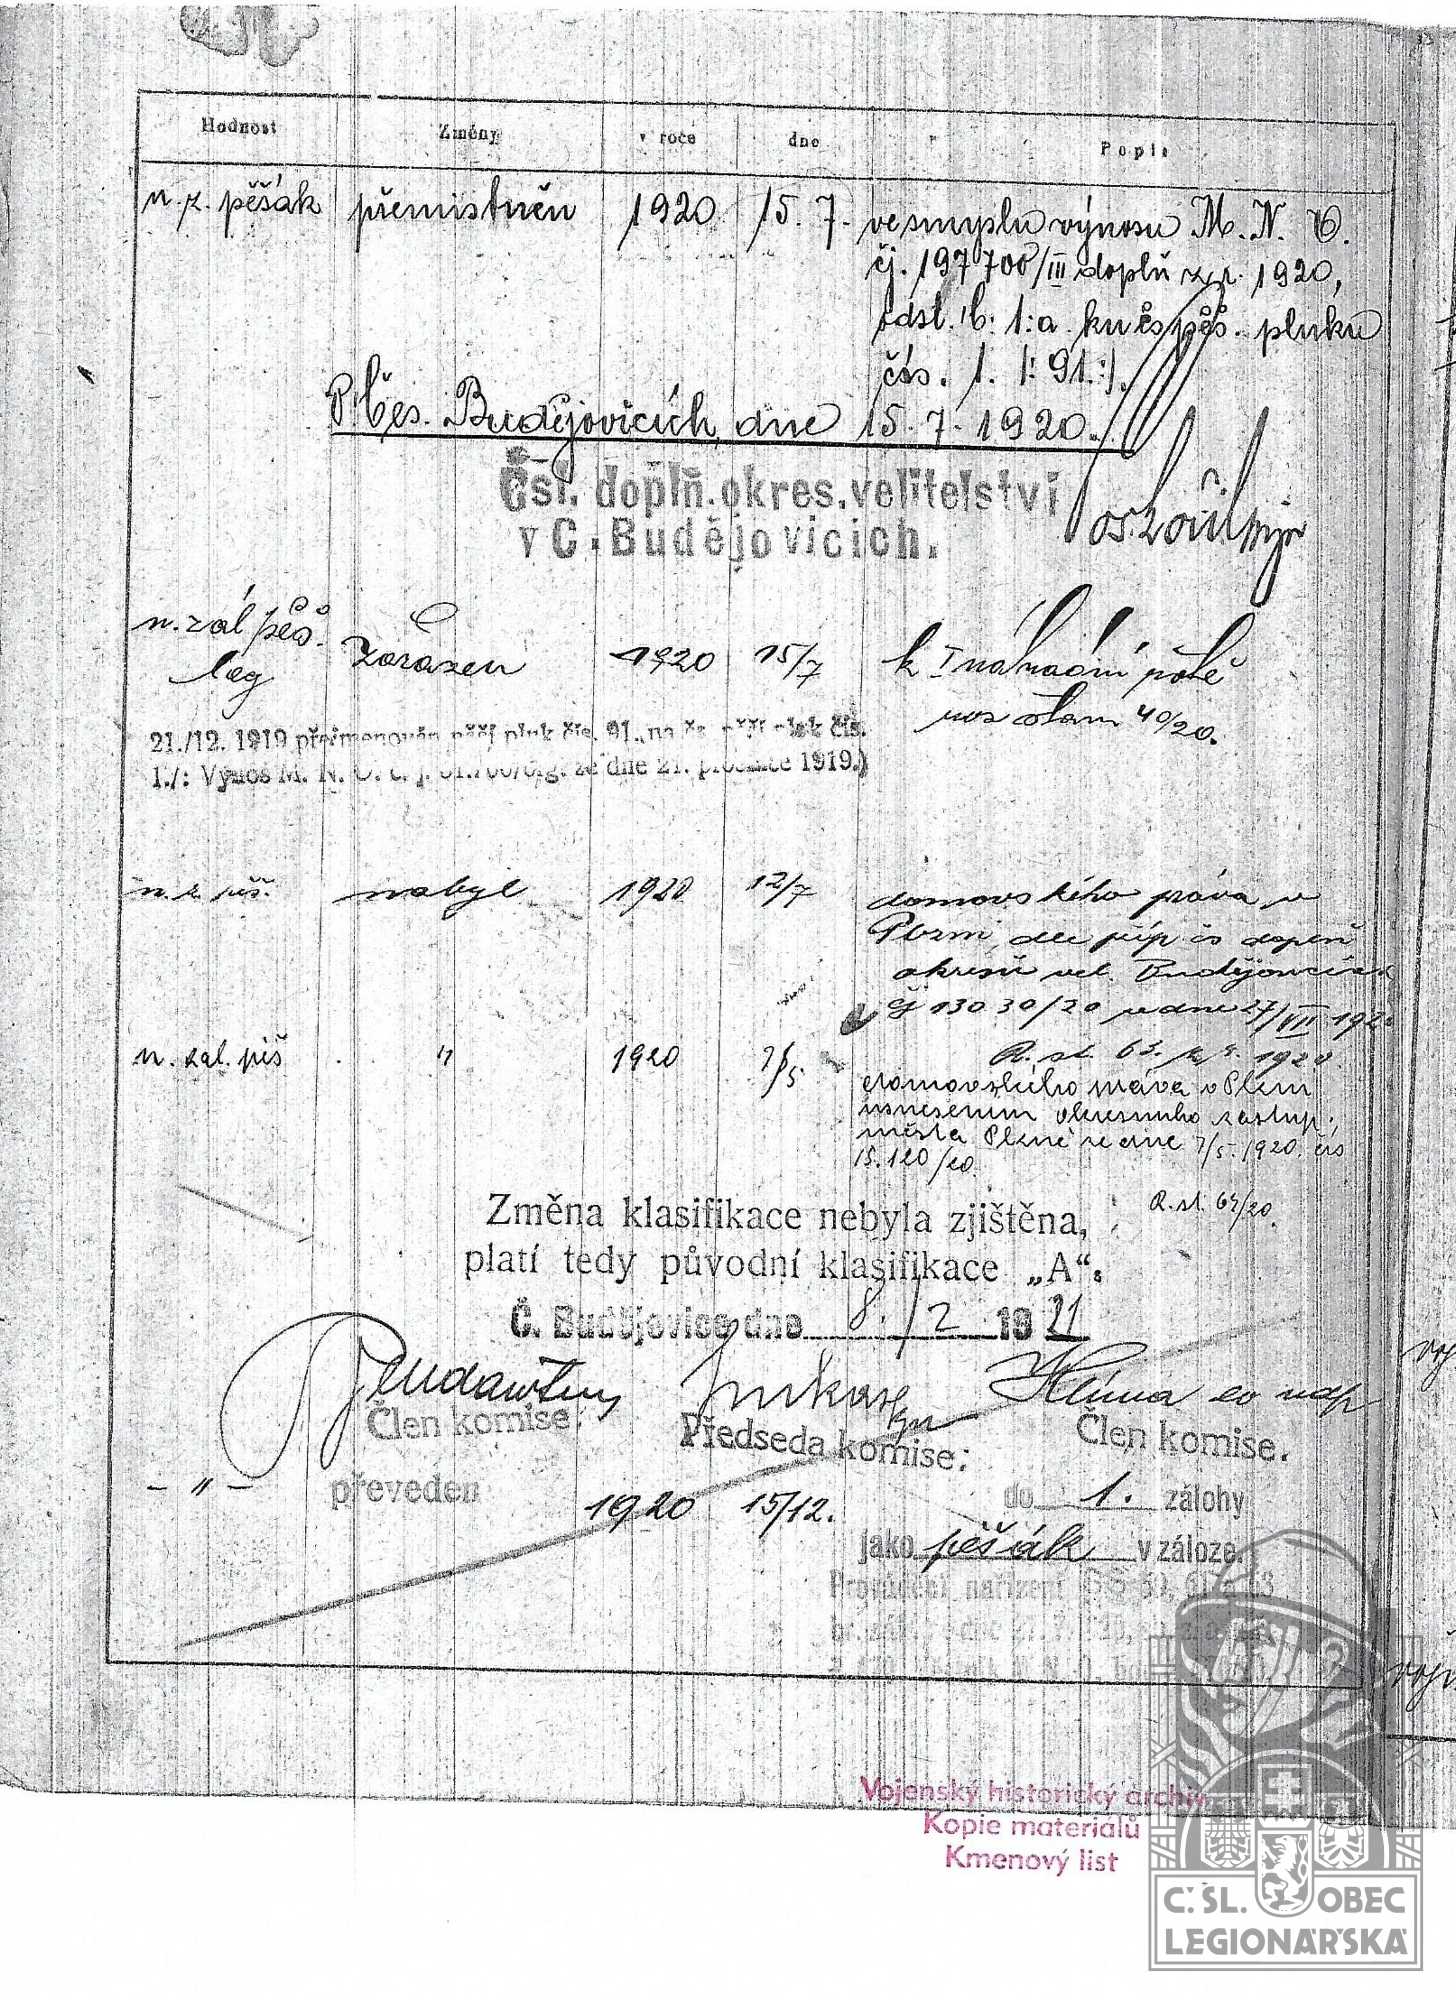 Hodnost Změny v roce dne Popis
n. z. pěšák přemístněn 1920 15. 7. ve smyslu výnosu M. N. O.
čj. 197700/III doplň z r. 1920,
odst. b: 1:a ku čs pěš. pluku
čís. 1. /: 91.:/.
V Čes. Budějovicích, dne 15. 7. 1920.
Čsl. doplň. okres. velitelství
v Č. Budějovicích.
n. zál pěš. zařazen 1920 15/7 k I náhradní rotě
leg
roz. člam 40/20.
21./12. 1919 přejmenován pěší pluk čís. 91 „na čs. pěší pluk čís.
1./: Výnos M. N. O. č. j. ze dne 21. prosince 1919.)
n. z. pěš. nabyl 1920 12/7 domovského práva v
Plzni, dle příp. čs doplň
okres. vel. Budějovicích
čj 13030/20 ze dne 27/VII 192
R. st. 63. z r. 1920.
n. zál. pěš " 1920 7/5. domovského práva v Plzni
usnesením obecního zastup.
města Plzně ze dne 7/5. 1920. čís
15.120/20.
R. st. 64/20.
Změna klasifikace nebyla zjištěna,
platí tedy původní klasifikace „A“.
Č. Budějovice dne 8./2 1921
Člen komise: Předseda komise: Člen komise.
– " – převeden 1920 15/12. do 1. zálohy
jako pěšák v záloze.
Prováděcí nařízení
Vojenský historický archiv
Kopie materiálů
Kmenový list
Č.SL. OBEC
LEGIONÁŘSKÁ